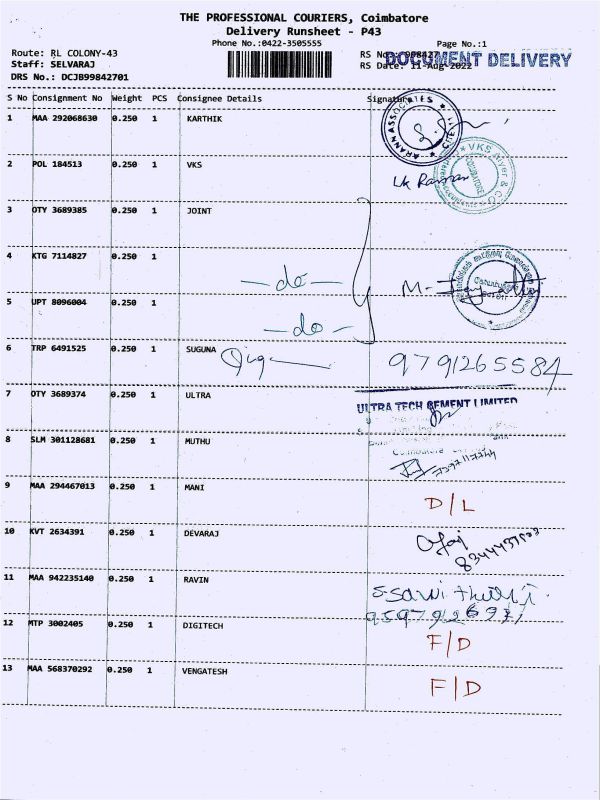 THE PROFESSIONAL COURIERS, Coimbatore
Delivery Runsheet - P43
Phone No.:0422-3505555 Page No.:1
Route: RL COLONY-43 RS No.: 998427 DOCUMENT DELIVERY
Staff: SELVARAJ RS Date: 11-Aug-2022
DRS No.: DCJB99842701
S No Consignment No Weight PCS Consignee Details Signature
1 MAA 292068630 0.250 1 KARTHIK
2 POL 184513 0.250 1 VKS
3 OTY 3689385 0.250 1 JOINT
4 KTG 7114827 0.250 1
-do-
5 UPT 8096004 0.250 1
-do-
6 TRP 6491525 0.250 1 SUGUNA 9791265584
7 OTY 3689374 0.250 1 ULTRA ULTRA TECH CEMENT LIMITED
8 SLM 301128681 0.250 1 MUTHU
9 MAA 294467013 0.250 1 MANI D/L
10 KVT 2634391 0.250 1 DEVARAJ
11 MAA 942235140 0.250 1 RAVIN
12 MTP 3002405 0.250 1 DIGITECH F/D
13 MAA 568370292 0.250 1 VENGATESH F/D